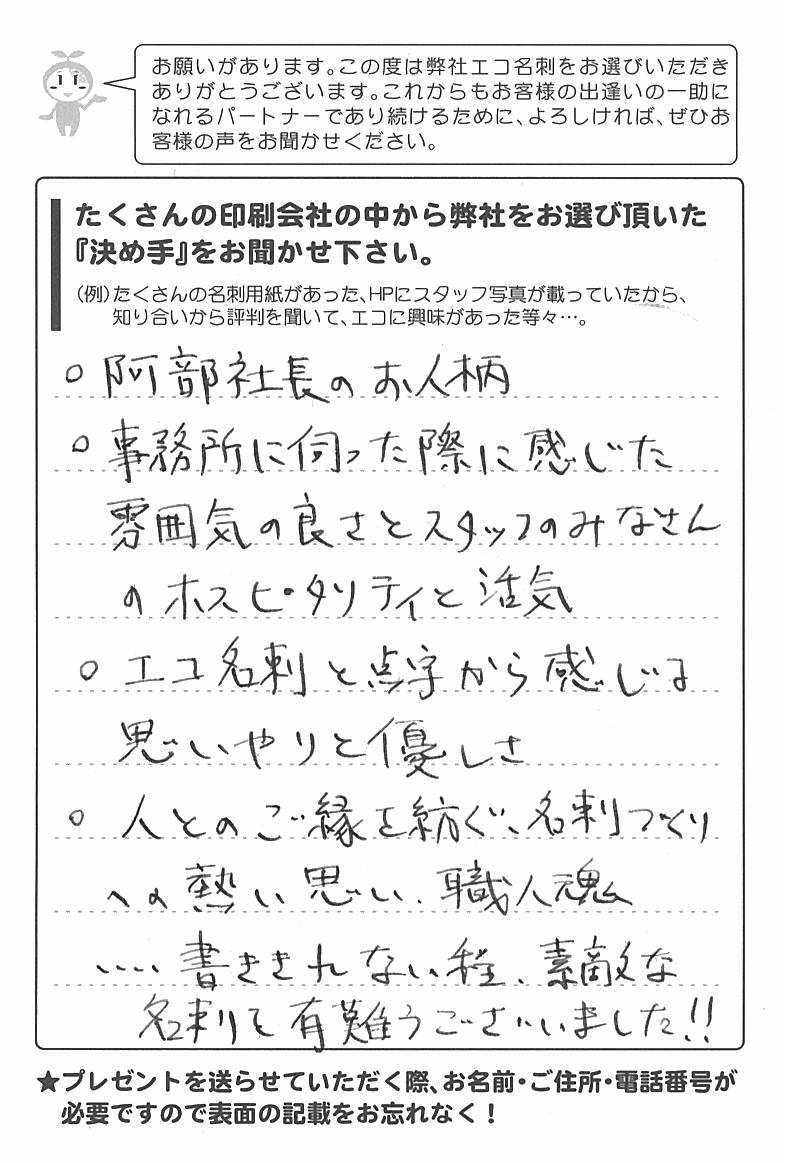 お願いがあります。この度は弊社エコ名刺をお選びいただき
ありがとうございます。これからもお客様の出逢いの一助に
なれるパートナーであり続けるために、よろしければ、ぜひお
客様の声をお聞かせください。
たくさんの印刷会社の中から弊社をお選び頂いた
『決め手』をお聞かせ下さい。
（例）たくさんの名刺用紙があった、HPにスタッフ写真が載っていたから、
知り合いから評判を聞いて、エコに興味があった等々…。
○ 阿部社長のお人柄
○ 事務所に伺った際に感じた
雰囲気の良さとスタッフのみなさん
のホスピタリティと活気
○ エコ名刺と点字から感じる
思いやりと優しさ
○ 人とのご縁を紡ぐ、名刺づくり
への熱い思い、職人魂
‥‥書ききれない程、素敵な
名刺を有難うございました!!
★プレゼントを送らせていただく際、お名前・ご住所・電話番号が
必要ですので表面の記載をお忘れなく！